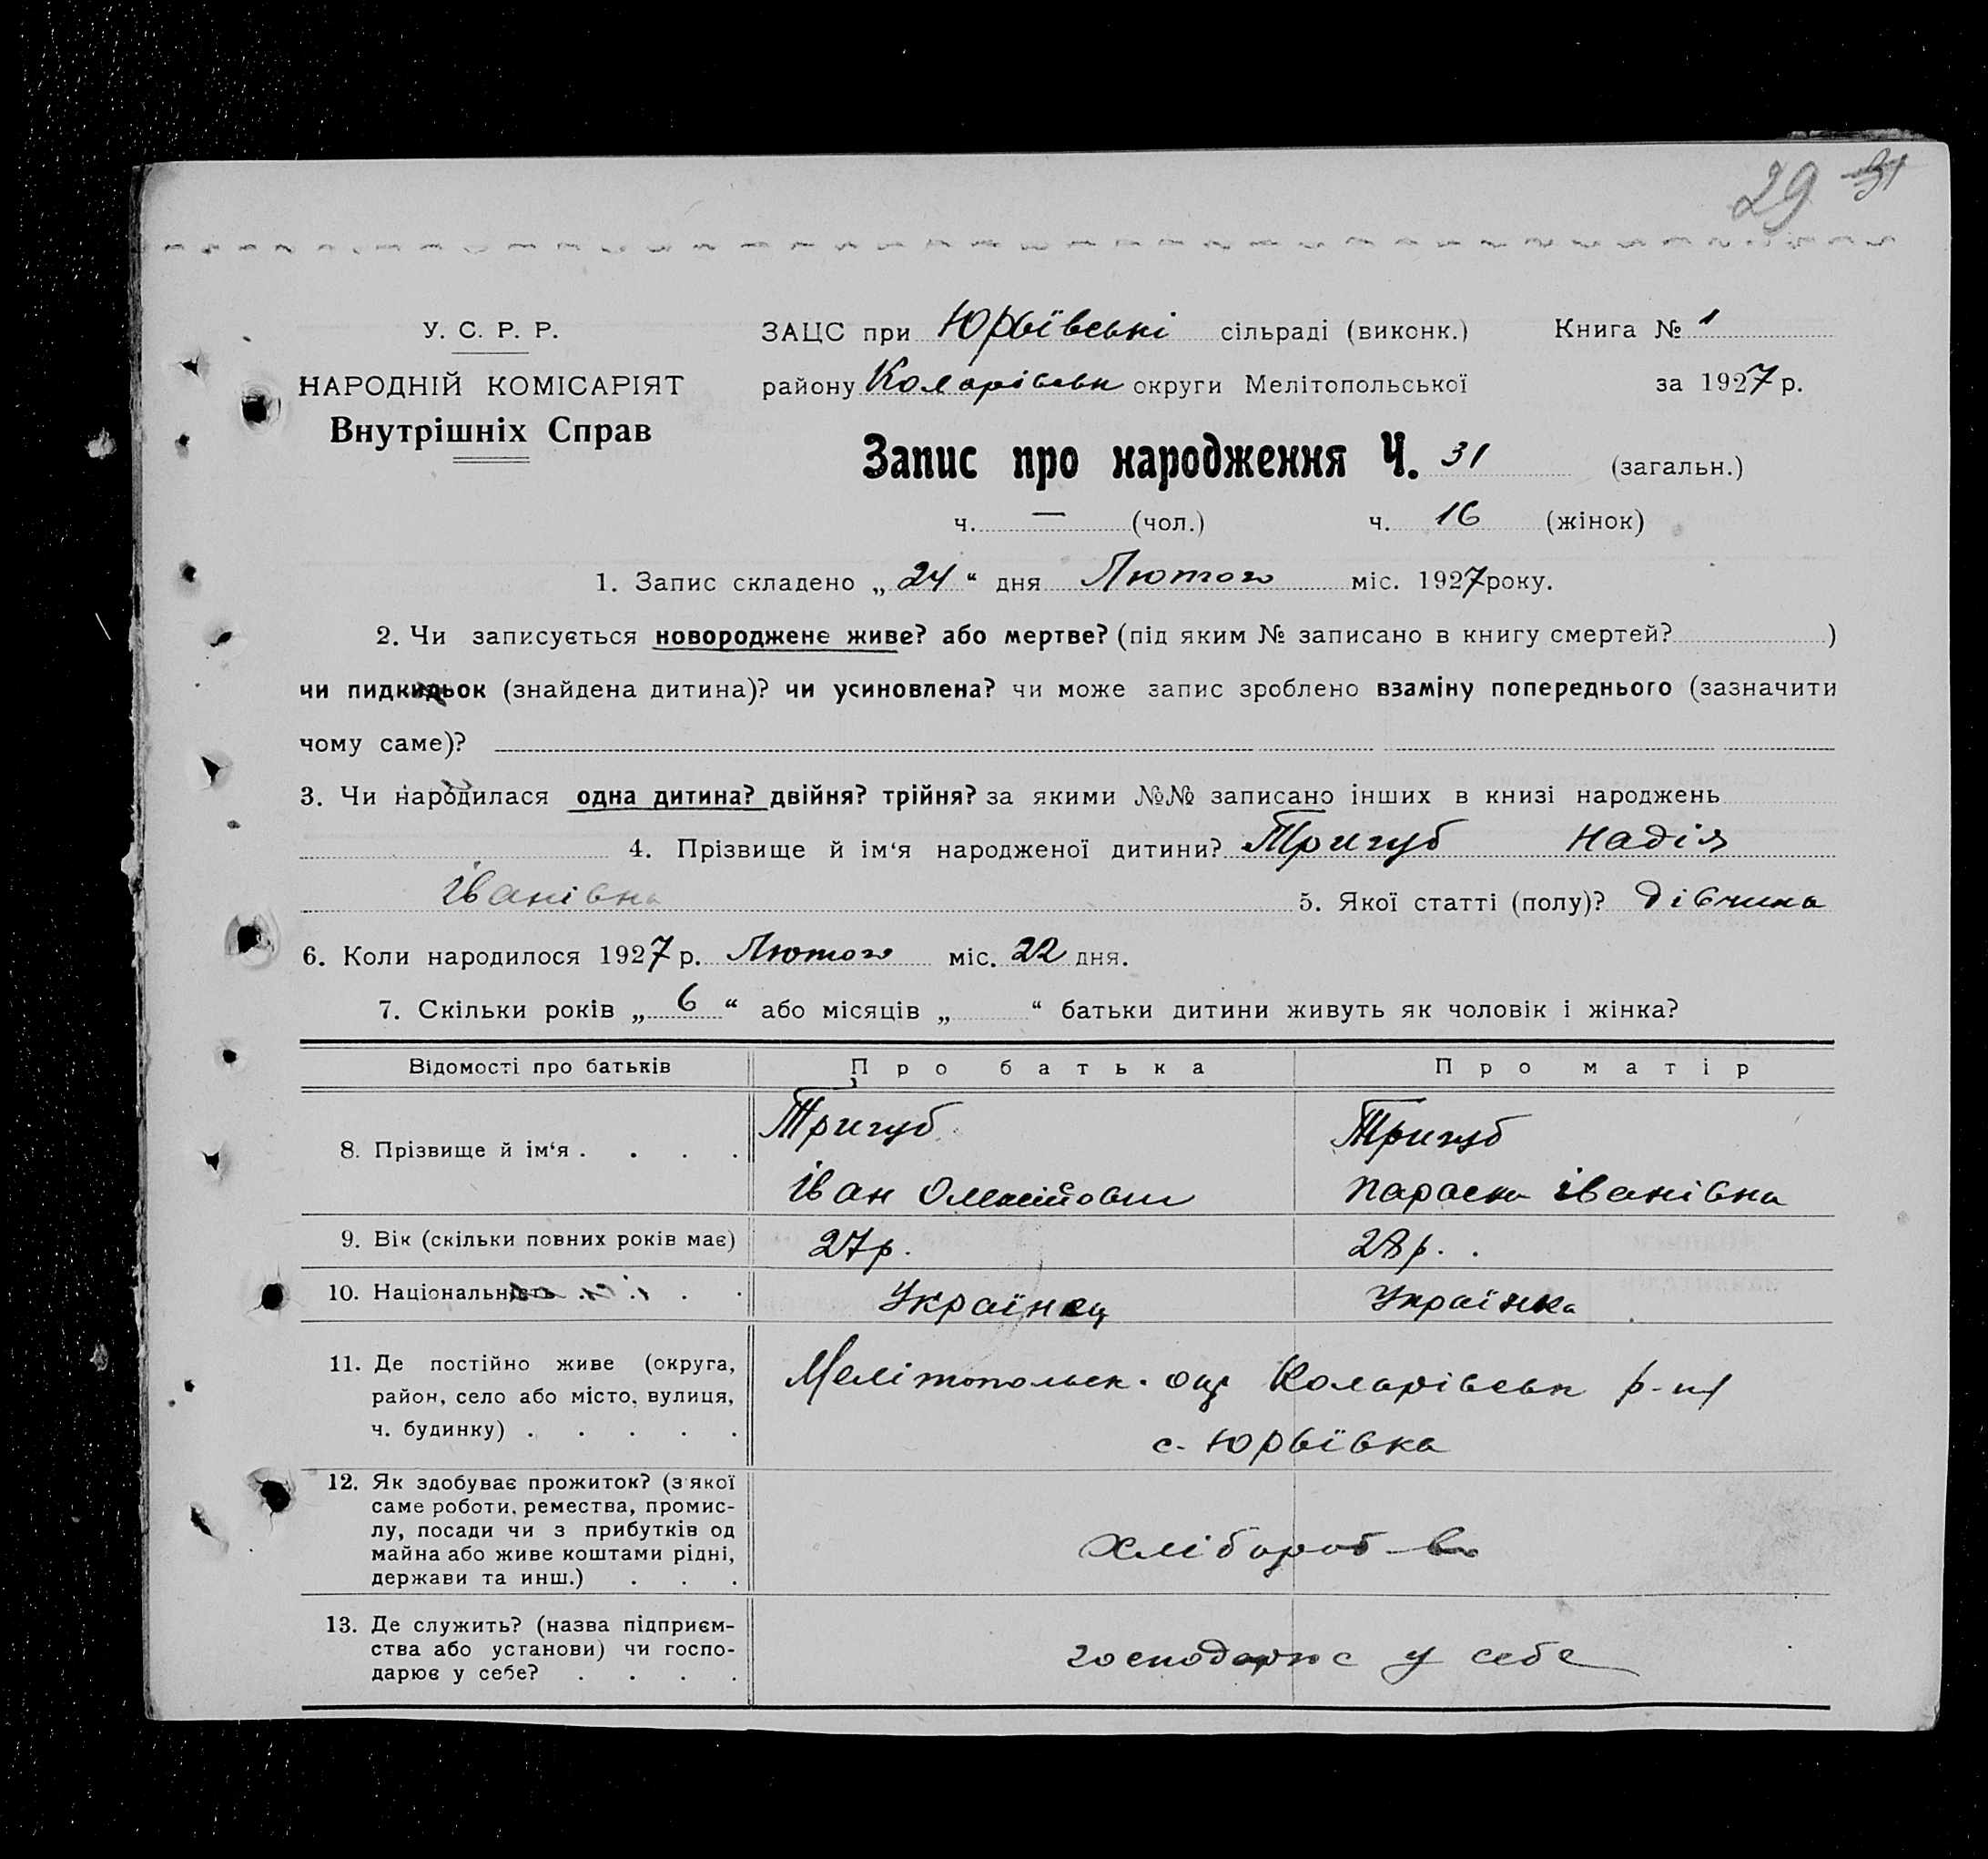 29 31
У. С. Р. Р.
НАРОДНІЙ КОМІСАРІЯТ
Внутрішніх Справ
ЗАЦС при Юрьївські сільраді (виконк.) Книга № 1
району Коларівськ округи Мелітопольської за 1927 р.
Запис про народження Ч. 31 (загальн.)
ч. — (чол.) ч. 16 (жінок)
1. Запис складено „ 24 “ дня Лютого міс. 1927 року.
2. Чи записується новороджене живе? або мертве? (під яким № записано в книгу смертей? )
чи пидкидьок (знайдена дитина)? чи усиновлена? чи може запис зроблено взаміну попереднього (зазначити
чому саме)?
3. Чи народилася одна дитина? двійня? трійня? за якими №№ записано інших в книзі народжень
4. Прізвище й ім‘я народженої дитини? Тригуб Надія
Іванівна 5. Якої статті (полу)? дівчина
6. Коли народилося 1927 р. Лютого міс. 22 дня.
7. Скільки років „ 6 “ або місяців „ “ батьки дитини живуть як чоловік і жінка?
Відомості про батьків Про батька Про матір
8. Прізвище й ім‘я . . . . Тригуб Тригуб
Іван Параска Іванівна
9. Вік (скільки повних років має) 27 р. 28 р.
10. Національність . . . . Українец Українка
11. Де постійно живе (округа,
район, село або місто, вулиця,
ч. будинку) . . . . .
Мелітопольск. окр Коларівськ р-н
с. Юрьївка
12. Як здобуває прожиток? (з якої
саме роботи, ремества, промис-
лу, посади чи з прибутків од
майна або живе коштами рідні,
держави та инш.) . . .
хлібороб-во
13. Де служить? (назва підприєм-
ства або установи) чи госпо-
дарює у себе? . . . .
господарює у себе